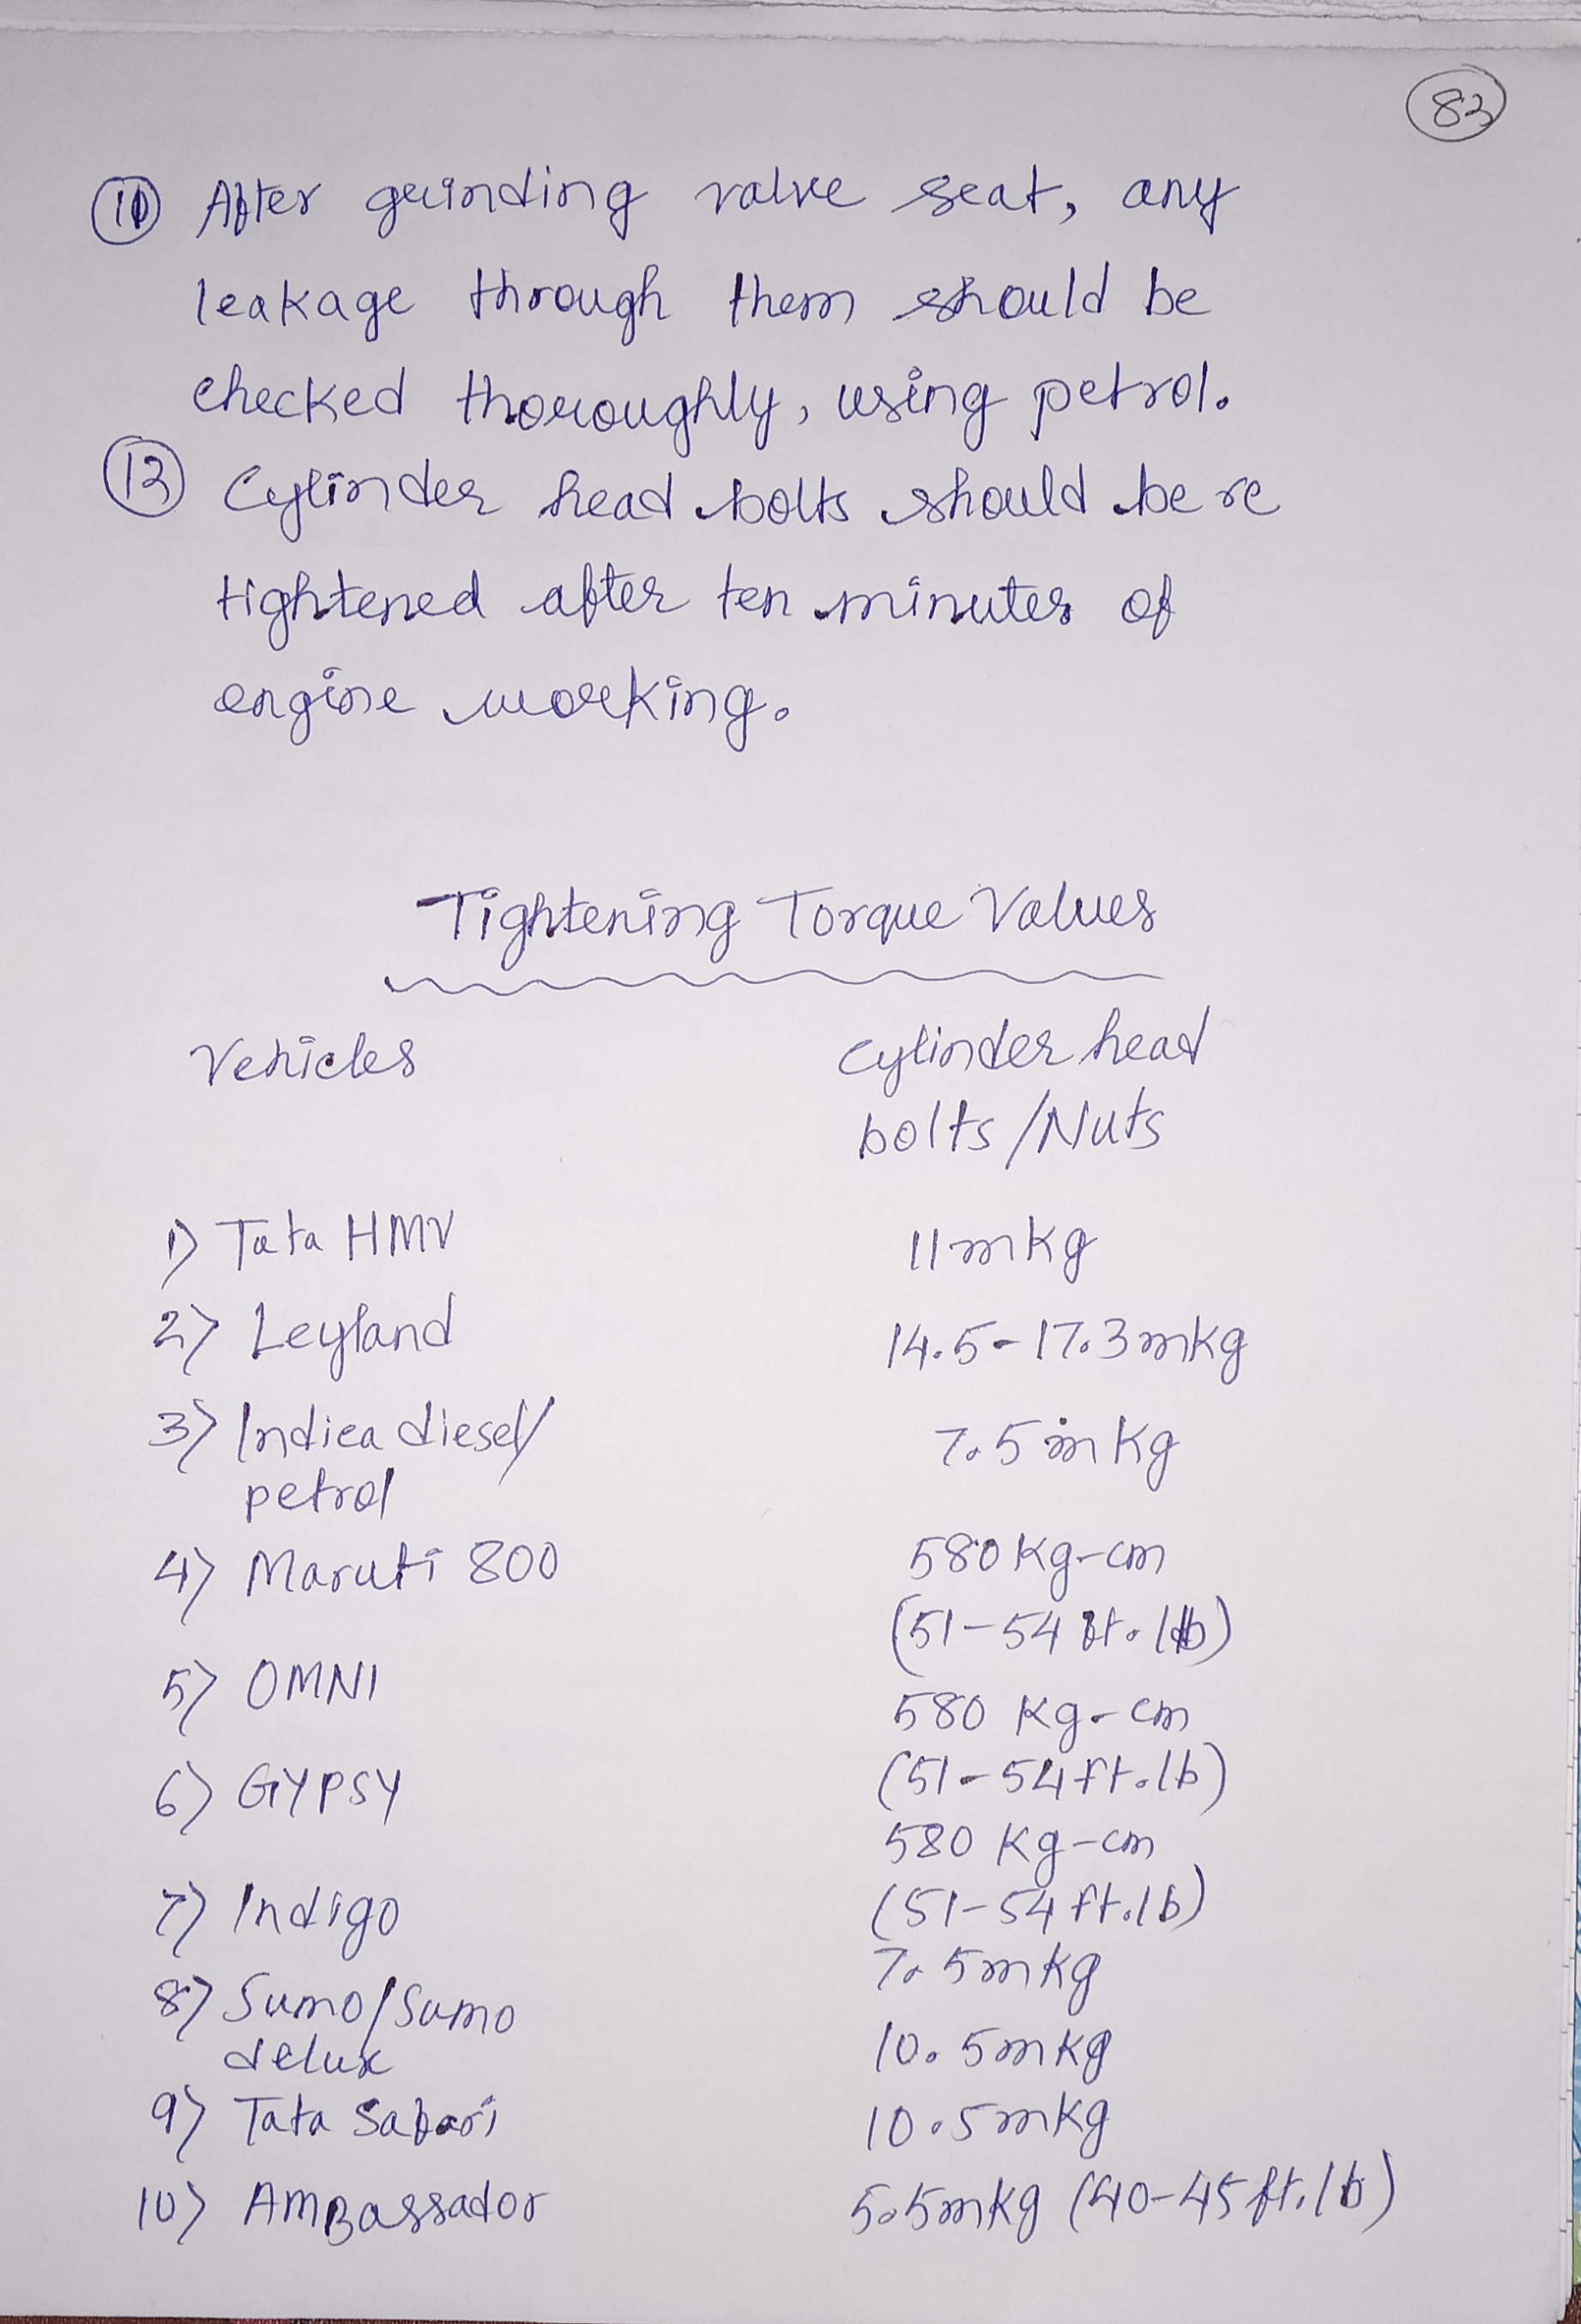 83
11 After grinding valve seat, any
leakage through them should be
checked thoroughly, using petrol.
12 Cylinder head bolts should be re
tightened after ten minutes of
engine working.
Tightening Torque Values
Vehicles Cylinder head
bolts/Nuts
1) Tata HMV 11mkg
2) Leyland 14.5-17.3mkg
3) Indica diesel/ 7.5mkg
petrol
4) Maruti 800 580kg-cm
(51-54 ft.lb)
5) OMNI 580 kg-cm
(51-54ft.lb)
6) GYPSY 580 kg-cm
(51-54 ft.lb)
7) Indigo 7.5mkg
8) Sumo/Sumo 10.5mkg
delux
9) Tata Safari 10.5mkg
10) AmBassador 5.5mkg (40-45ft.lb)